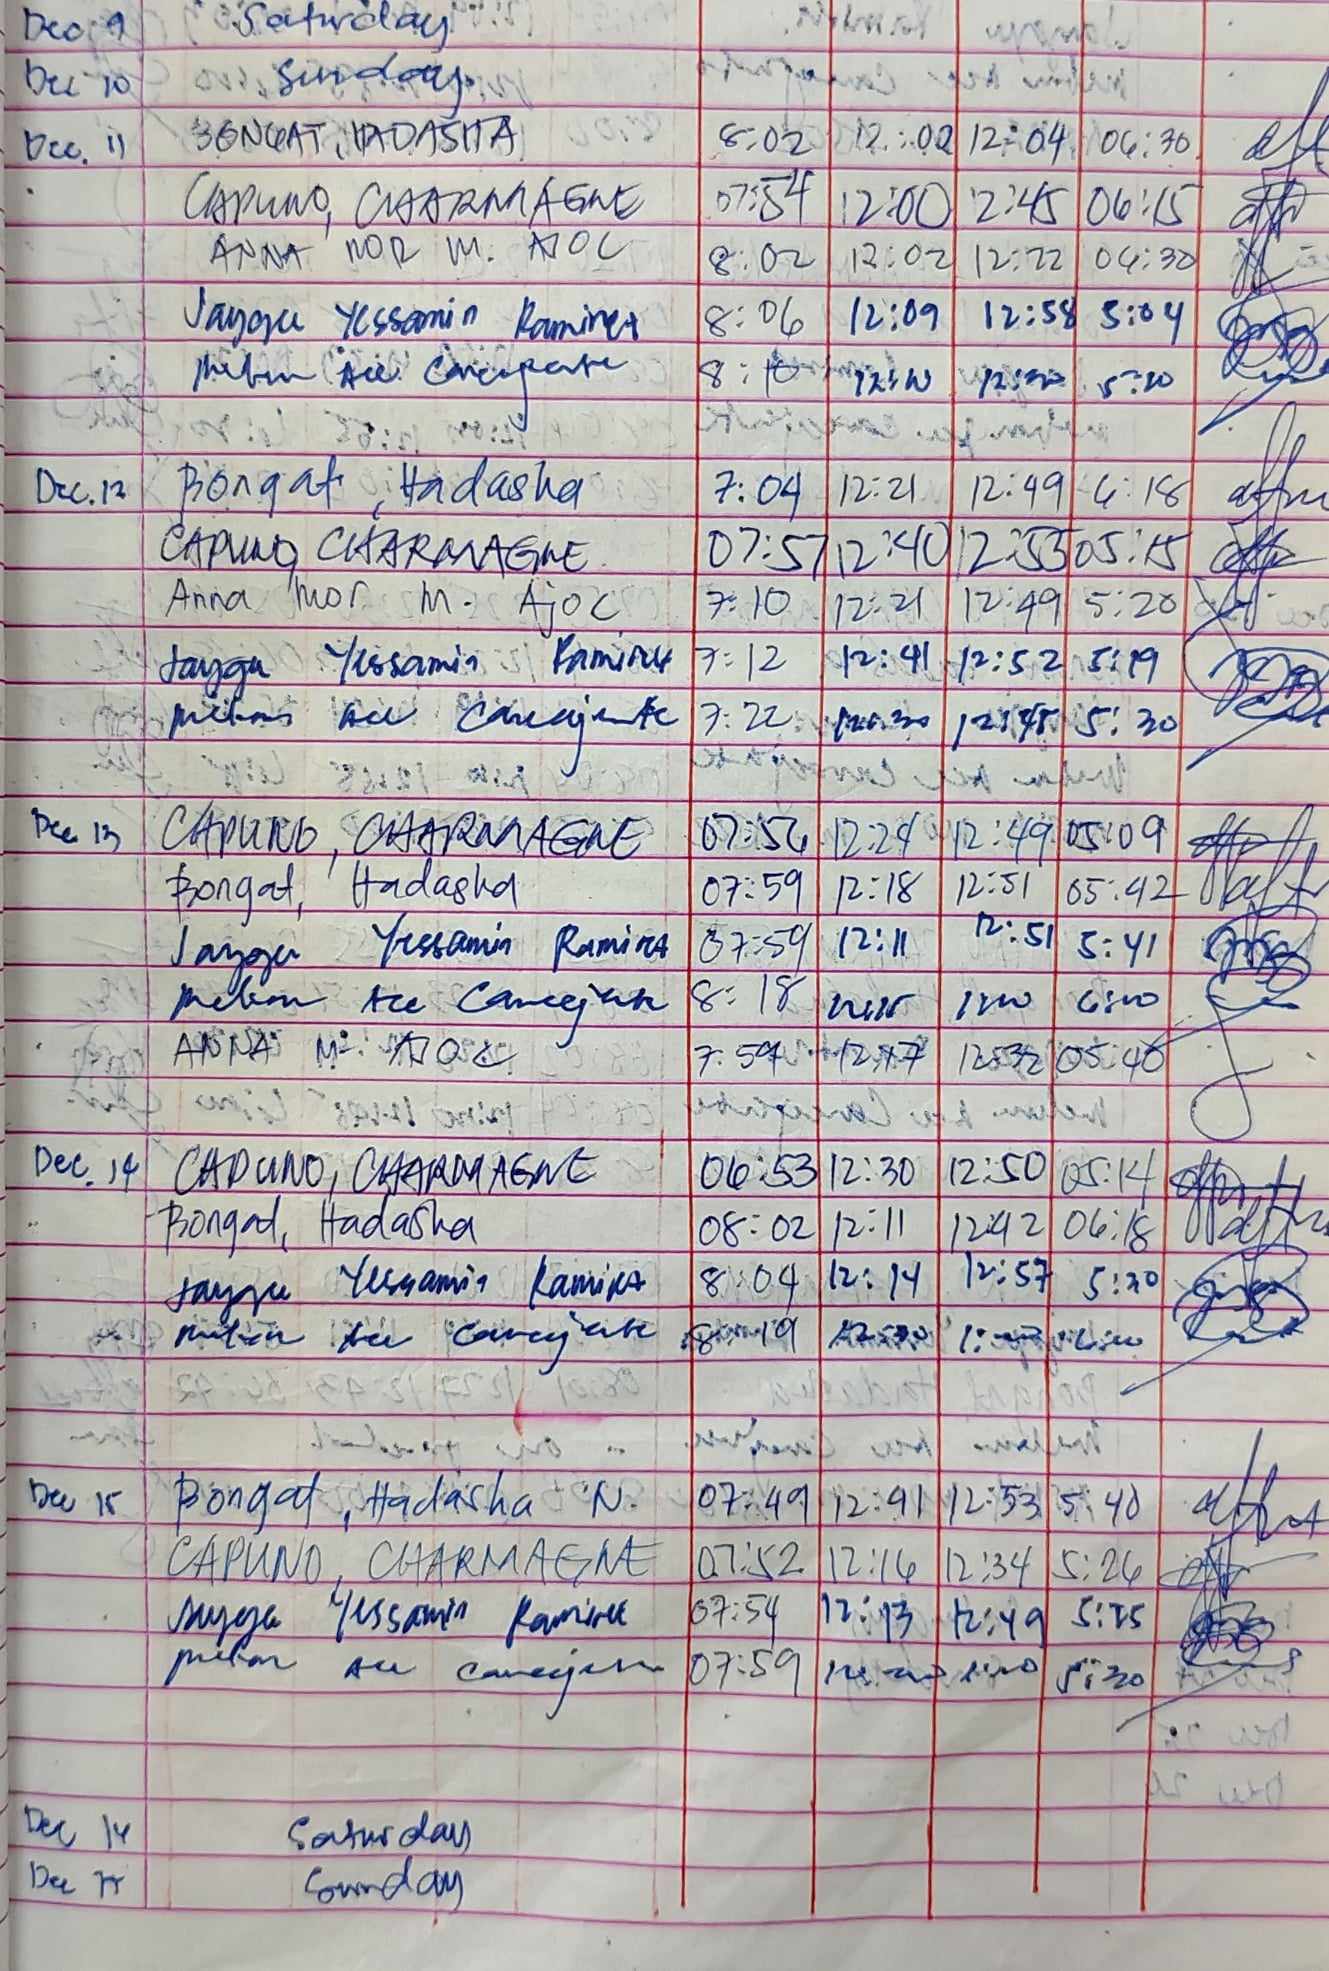 Dec 9 Saturday
Dec 10 Sunday
Dec. 11 BONGAT, HADASHA 8:02 12:02 12:04 06:30
CAPUNO, CHARMAGNE 07:54 12:00 12:45 06:15
ANNA MOR M. AJOC 8:02 12:02 12:22 06:30
Jaygu Yessamin Ramirez 8:06 12:09 12:58 5:04
Ace 8:10 12:10 12:30 5:20
Dec. 12 Bongat, Hadasha 7:04 12:21 12:49 6:18
CAPUNO, CHARMAGNE 07:57 12:40 12:53 05:15
Anna Mor M. Ajoc 7:10 12:21 12:49 5:20
Jaygu Yessamin Ramirez 7:12 12:41 12:52 5:19
Ace 7:22 12:30 12:45 5:30
Dec 13 CAPUNO, CHARMAGNE 07:56 12:24 12:49 05:09
Bongat, Hadasha 07:59 12:18 12:51 05:42
Jaygu Yessamin Ramirez 07:59 12:11 12:51 5:41
Ace 8:18 6:00
ANNA M. AJOC 7:59 12:17 12:32 05:40
Dec. 14 CAPUNO, CHARMAGNE 06:53 12:30 12:50 05:14
Bongat, Hadasha 08:02 12:11 12:42 06:18
Jaygu Yessamin Ramirez 8:04 12:14 12:57 5:30
Ace 8:19
Dec 15 Bongat, Hadasha N. 07:49 12:41 12:53 5:40
CAPUNO, CHARMAGNE 07:52 12:16 12:34 5:26
Jaygu Yessamin Ramirez 07:54 12:13 12:49 5:25
Ace 07:59 5:30
Dec 16 Saturday
Dec 17 Sunday